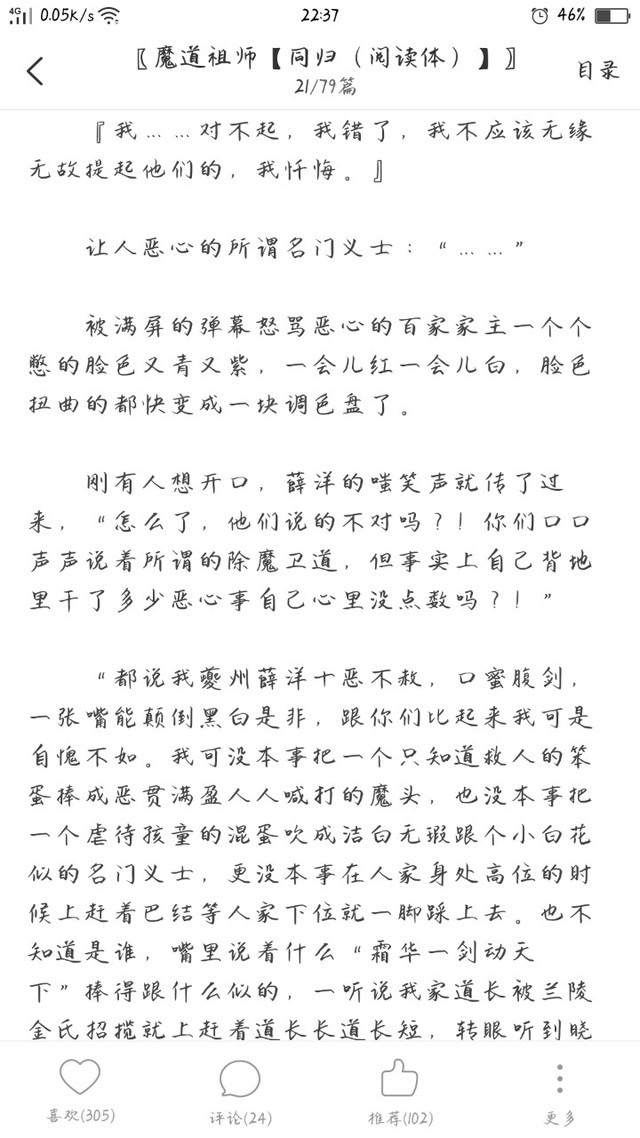 4G 0.05K/s 22:37 46%
〖魔道祖师【同归（阅读体）】〗
21/79篇
目录
『我……对不起，我错了，我不应该无缘
无故提起他们的，我忏悔。』
让人恶心的所谓名门义士：“……”
被满屏的弹幕怒骂恶心的百家家主一个个
憋的脸色又青又紫，一会儿红一会儿白，脸色
扭曲的都快变成一块调色盘了。
刚有人想开口，薛洋的嗤笑声就传了过
来，“怎么了，他们说的不对吗？！你们口口
声声说着所谓的除魔卫道，但事实上自己背地
里干了多少恶心事自己心里没点数吗？！”
“都说我夔州薛洋十恶不赦，口蜜腹剑，
一张嘴能颠倒黑白是非，跟你们比起来我可是
自愧不如。我可没本事把一个只知道救人的笨
蛋捧成恶贯满盈人人喊打的魔头，也没本事把
一个虐待孩童的混蛋吹成洁白无瑕跟个小白花
似的名门义士，更没本事在人家身处高位的时
候上赶着巴结等人家下位就一脚踩上去。也不
知道是谁，嘴里说着什么“霜华一剑动天
下”捧得跟什么似的，一听说我家道长被兰陵
金氏招揽就上赶着道长长道长短，转眼听到晓
喜欢(305)
评论(24)
推荐(102)
更多